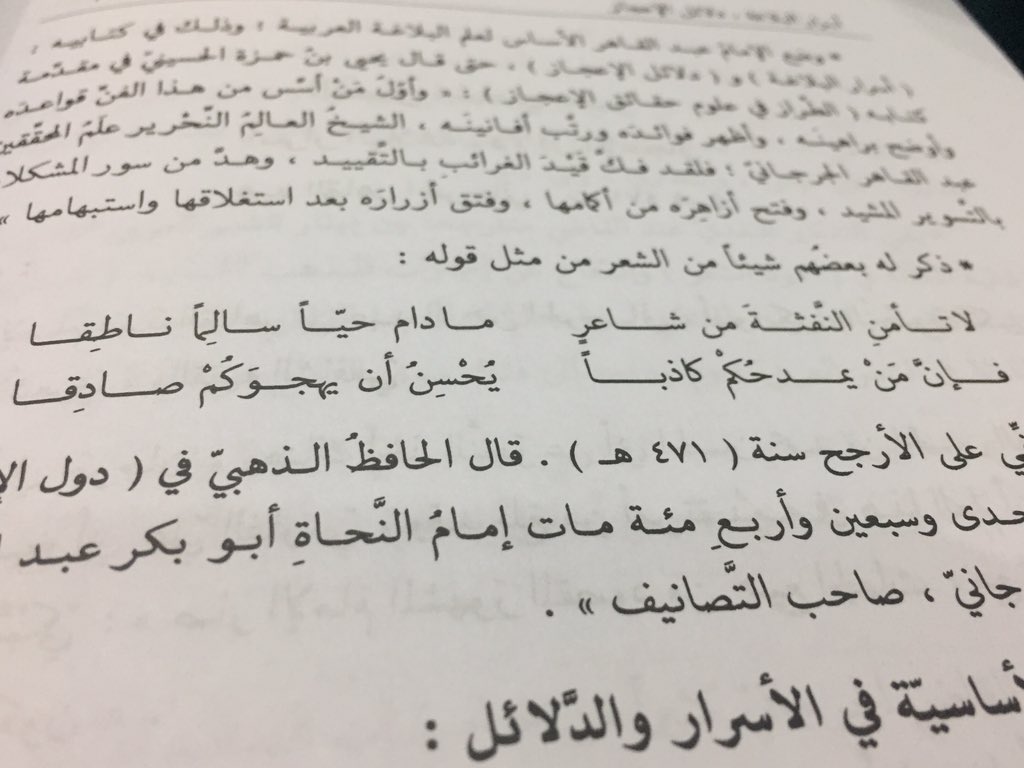 أسرار البلاغة ، دلائل الإعجاز
* وضع الإمامُ عبد القاهر الأساس لعلم البلاغة العربية ؛ وذلك في كتابيه :
( أسرار البلاغة ) و ( دلائل الإعجاز ) ، حتى قال يحيى بنُ حمزة الحسينيّ في مقدّمة
كتابه ( الطّراز في علوم حقائق الإعجاز ) : « وأوّل مَنْ أسّس من هذا الفنّ قواعدَه
وأوضح براهينَه ، وأظهر فوائدَه ورتّب أفانينَه ، الشيخُ العالِمُ النّحْرير علَمُ المحقّقين
عبد القاهر الجرجانيّ ؛ فلقد فكّ قَيْدَ الغرائبِ بالتّقييد ، وهدّ من سور المشكلا
بالتّسوير المشيد ، وفتح أزاهِرَه من أكمامها ، وفتق أزرارَه بعد استغلاقها واستبهامها »
* ذكر له بعضُهم شيئاً من الشعر من مثل قوله :
لا تـأمنِ النَّفْثـةَ من شـاعرٍ مـادام حيّـاً سـالِمـاً نـاطِقـا
فـإنَّ مَنْ يمـدحُكُمْ كاذبـاً يُحْسِنُ أن يهجـوَكُمْ صـادِقـا
ـيِّ على الأرجح سنة ( ٤٧١ هـ ) . قال الحافظُ الـذهبيّ في ( دول الإ
حدى وسبعين وأربعِ مئة مات إمامُ النَّحاةِ أبـو بكر عبد ا
جانيّ ، صاحب التَّصانيف » .
أساسيّة في الأسرار والدَّلائل :